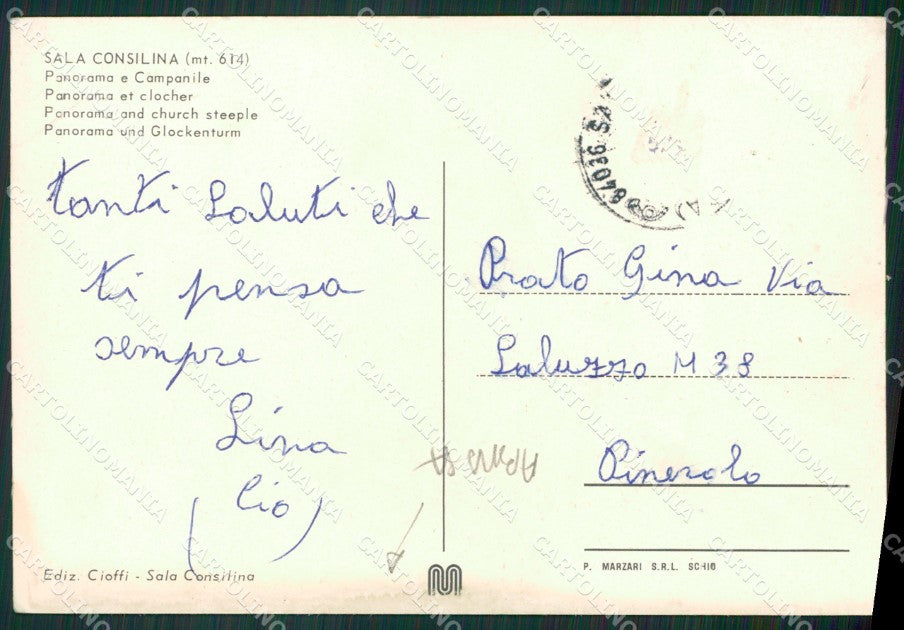 SALA CONSILINA (mt. 614)
Panorama e Campanile
Panorama et clocher
Panorama and church steeple
Panorama und Glockenturm
tanti Saluti che
ti pensa
sempre
Lina
(Cio)
84036 SA
Prato Gina Via
Saluzzo N 38
Pinerolo
Ediz. Cioffi - Sala Consilina
P. MARZARI S.R.L. SCHIO
CARTOLINOMANIA